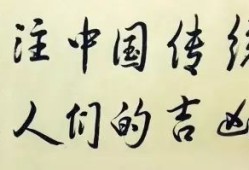 注中国传统
人们的吉凶